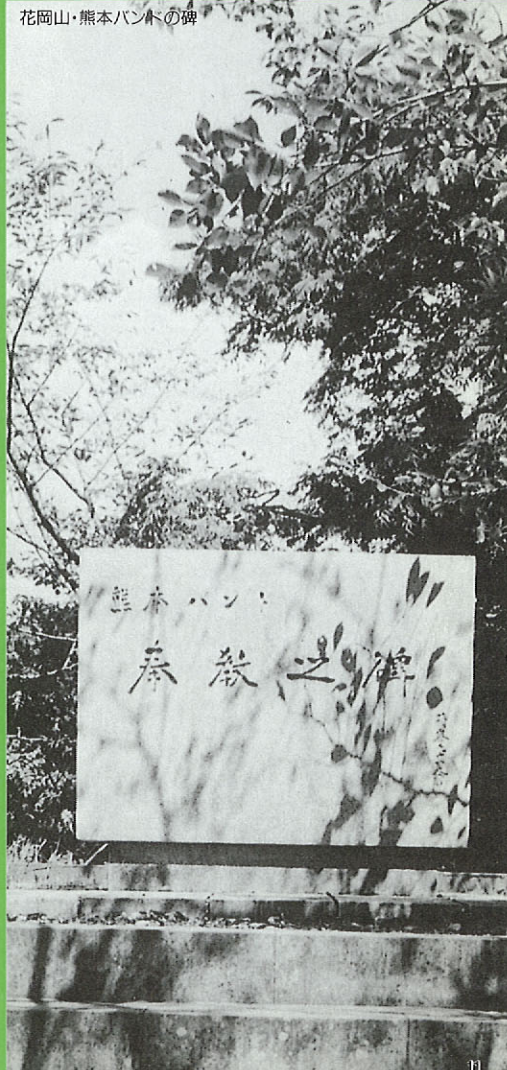 花岡山・熊本バンドの碑
熊本バンド
奉教之碑
11